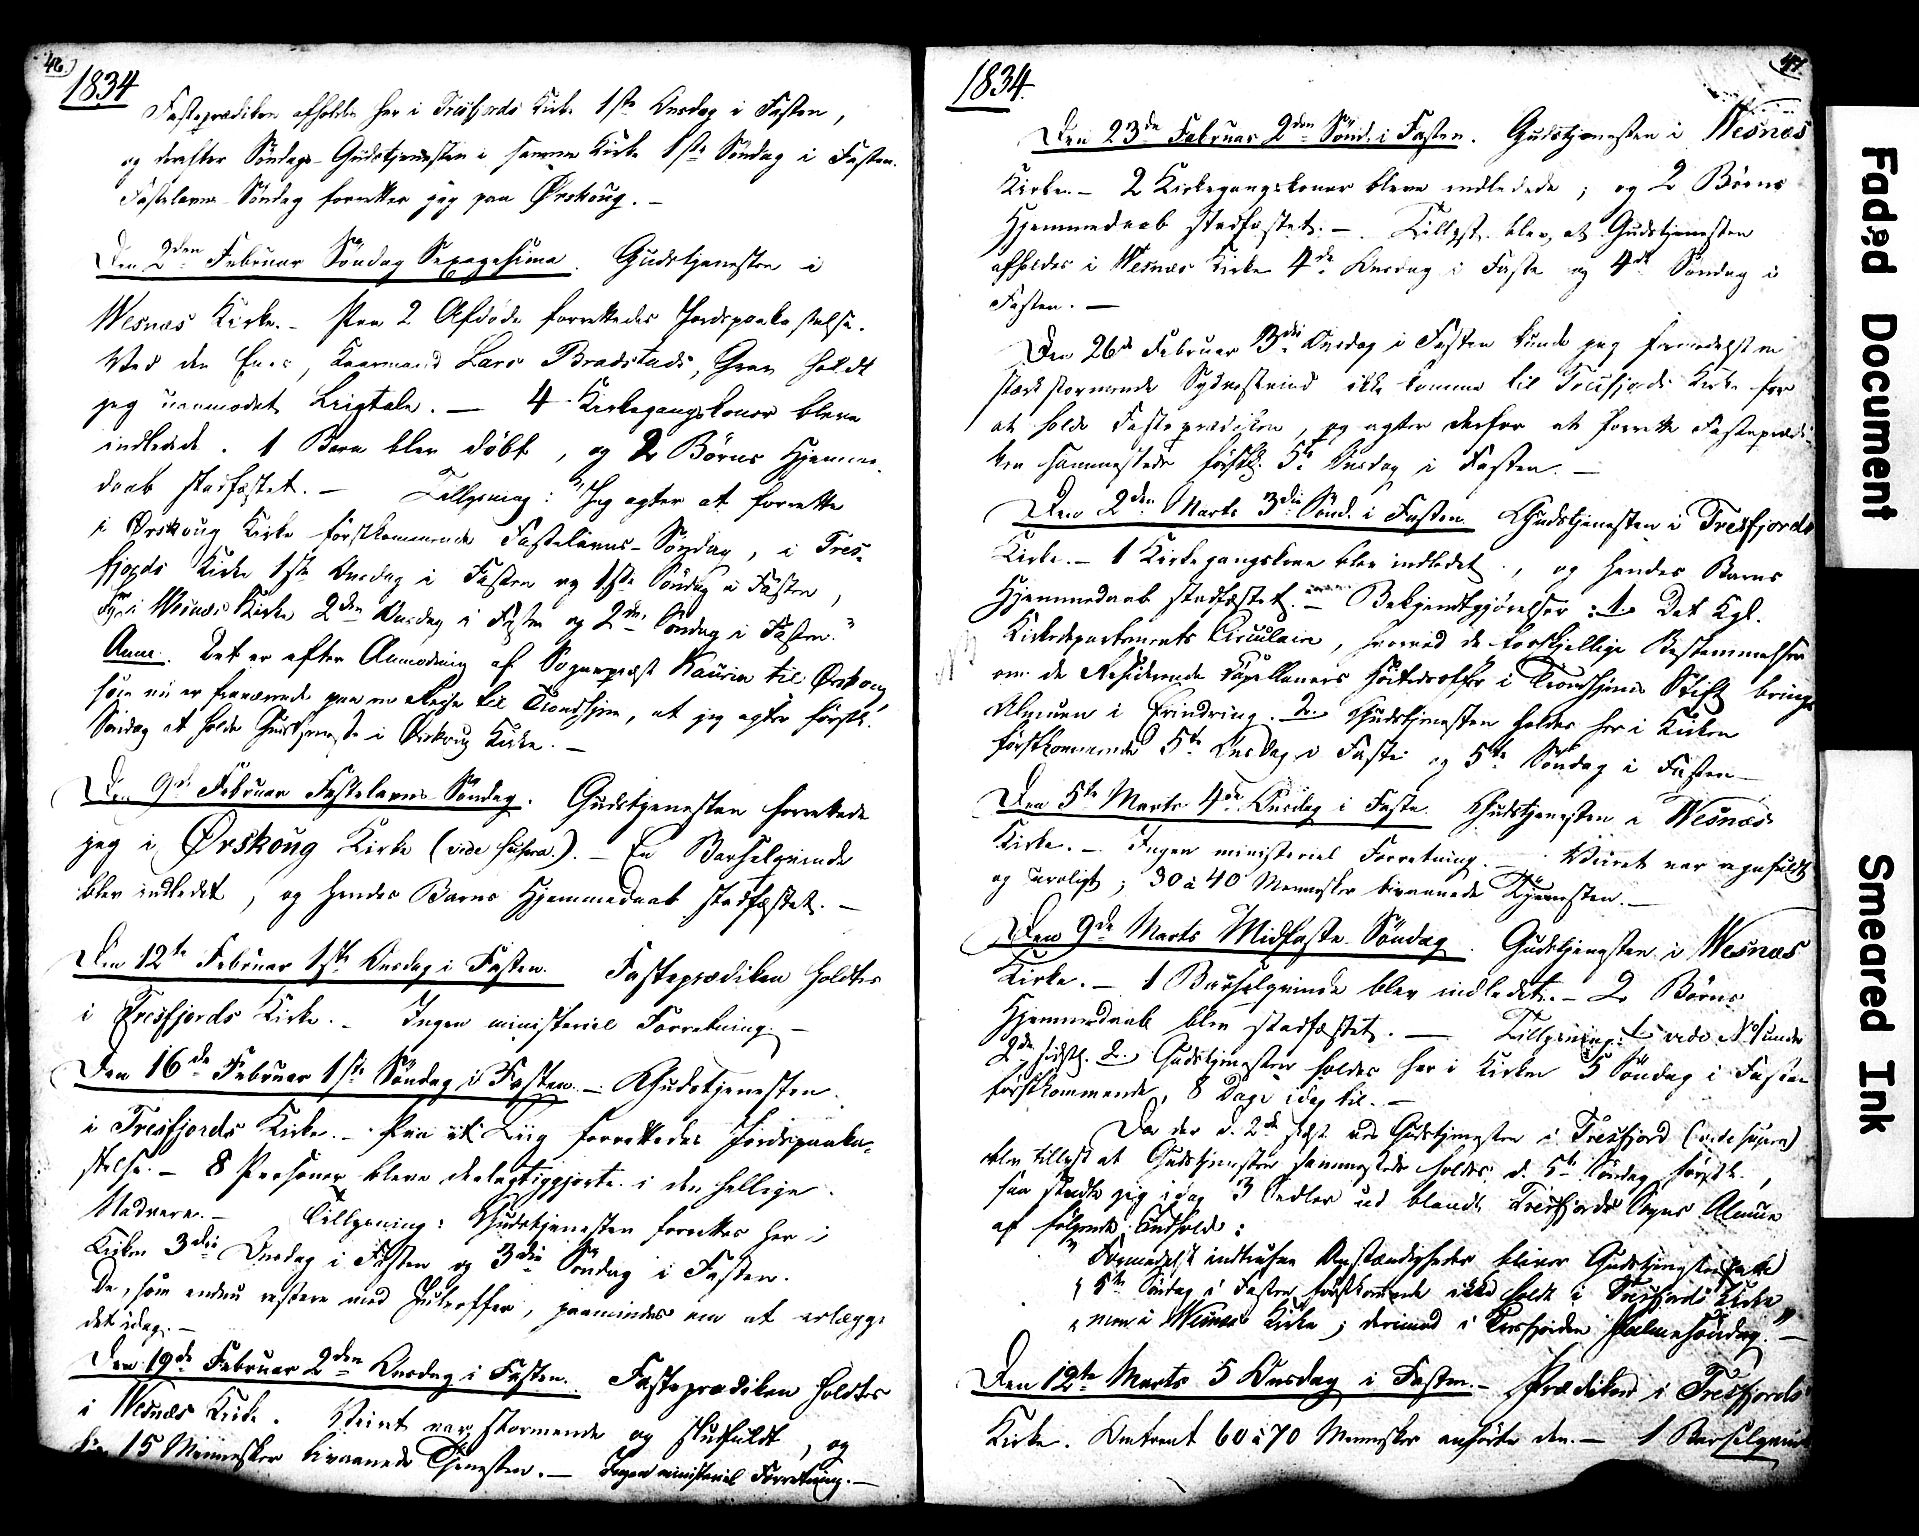 46.)
1834
Fasteprædiken afholdes her i Tresfjords Kirke 1ste Onsdag i Fasten,
og derefter Söndags-Gudstjenesten i samme Kirke 1ste Söndag i Fasten.
Fastelavns-Söndag forretter jeg paa Ørskoug. —
Den 2den Februar Söndag Sexagesima. Gudstjenesten i
Wesnæs Kirke. – Paa 2 Afdöde forrettedes Jordspaakastelse.
Ved den Enes, Kaarmand Lars Bradstads, Grav holdt
jeg uanmodet Liigtale. — 4 Kirkegangskoner bleve
indledede. 1 Barn blev döbt, og 2 Börns Hjemme-
daab stadfæstet. — Tillysning: "Jeg agter at forrette
i Ørskoug Kirke förstkommende Fastelavns-Söndag, i Tres-
fjords Kirke 1ste Onsdag i Fasten og 1ste Söndag i Fasten,
her i Wesnæs Kirke 2den Onsdag i Fasten og 2den Söndag i Fasten."
Anm. Det er efter Anmodning af Sogneprest Kaurin til Ørskoug,
som nu er fraværende paa en Reise til Trondhjem, at jeg agter förstk.
Söndag at holde Gudstjeneste i Ørskoug Kirke. —
Den 9de Februar Fastelavns-Söndag. Gudstjenesten forrettede
jeg i Ørskoug Kirke (vide supra.). – En Barselqvinde
blev indledet, og hendes Barns Hjemmedaab stadfæstet. —
Den 12te Februar 1ste Onsdag i Fasten. Fasteprædiken holdtes
i Tresfjords Kirke. – Ingen ministeriel Forretning. —
Den 16de Februar 1ste Söndag i Fasten. – Gudstjenesten
i Tresfjords Kirke. – Paa et Liig forrettedes Jordspaaka-
stelse. – 8 Personer bleve deelagtiggjorte i den hellige
Nadvere. – Tillysning: Gudstjenesten forrettes her i
Kirken 3die Onsdag i Fasten og 3die Söndag i Fasten.
De, som endnu restere med Juleoffer, paamindes om at erlægge
det idag. —
Den 19de Februar 2den Onsdag i Fasten. Fasteprædiken holdtes
i Wesnæs Kirke. Veiret var stormende og sludfuldt, og
15 Mennesker bivaanede Tjenesten. — Ingen ministeriel Forretning. —
47
1834.
Den 23de Februar 2den Sönd. i Fasten. Gudstjenesten i Wesnæs
Kirke. – 2 Kirkegangskoner bleve indledede; og 2 Börns
Hjemmedaab stadfæstet. —. Tillyst blev, at Gudstjenesten
afholdes i Wesnæs Kirke 4de Onsdag i Faste og 4de Söndag i
Fasten. —
Den 26de Februar 3die Onsdag i Fasten kunde jeg formedelst en
stærk stormende Sydvestvind ikke komme til Tresfjords Kirke for
at holde Fasteprædiken, og agter derfor at forrette Fasteprædi-
ken sammesteds förstk. 5te Onsdag i Fasten. —
Den 2den Marts 3die Sönd. i Fasten. Gudstjenesten i Tresfjords
Kirke. – 1 Kirkegangskone blev indledet, og hendes Barns
Hjemmedaab stadfæstet. — Bekjendtgjörelser: 1. Det Kgl.
Kirkedepartements Circulair, hvorved de forskjellige Bestemmelser
om de Residerende Capellaners Höitidsoffer i Trondhjems Stift bringes
Almuen i Erindring. 2. Gudstjenesten holdes her i Kirken
förstkommende 5te Onsdag i Faste og 5te Söndag i Fasten —
Den 5te Marts 4de Onsdag i Faste. Gudstjenesten i Wesnæs
Kirke. – Ingen ministeriel Forretning. — Veiret var regnfuldt
og uroligt; 30 à 40 Mennesker bivaanede Tjenesten. —
Den 9de Marts Midfaste Söndag. Gudstjenesten i Wesnæs
Kirke. – 1 Barselqvinde blev indledet. – 2 Börns
Hjemmedaab blev stadfæstet. — Tillysning: 1. vide No 1 under
2den sidstl. 2. Gudstjenesten holdes her i Kirken 5 Söndag i Fasten
förstkommende, 8 Dage idag til. —
Da der d. 2den sidst ved Gudstjenesten i Tresfjord (vide supra)
blev tillyst at Gudstjenesten sammesteds holdes d. 5te Söndag förstk.,
saa sendte jeg idag 3 Sedler ud blandt Tresfjords Sogns Almue
af fölgende Indhold:
" Formedelst indtrufne Omstændigheder bliver Gudstjenesten
" 5te Söndag i Fasten förstkommende ikke holdt i Tresfjords Kirke
" men i Wesnæs Kirke; derimod i Tresfjorden Palmesöndag." —
Den 12te Marts 5 Onsdag i Fasten. – Prædiken i Tresfjords
Kirke. Omtrent 60 à 70 Mennesker anhörte den. — 1 Barselqvinde
Faded Document
Smeared Ink